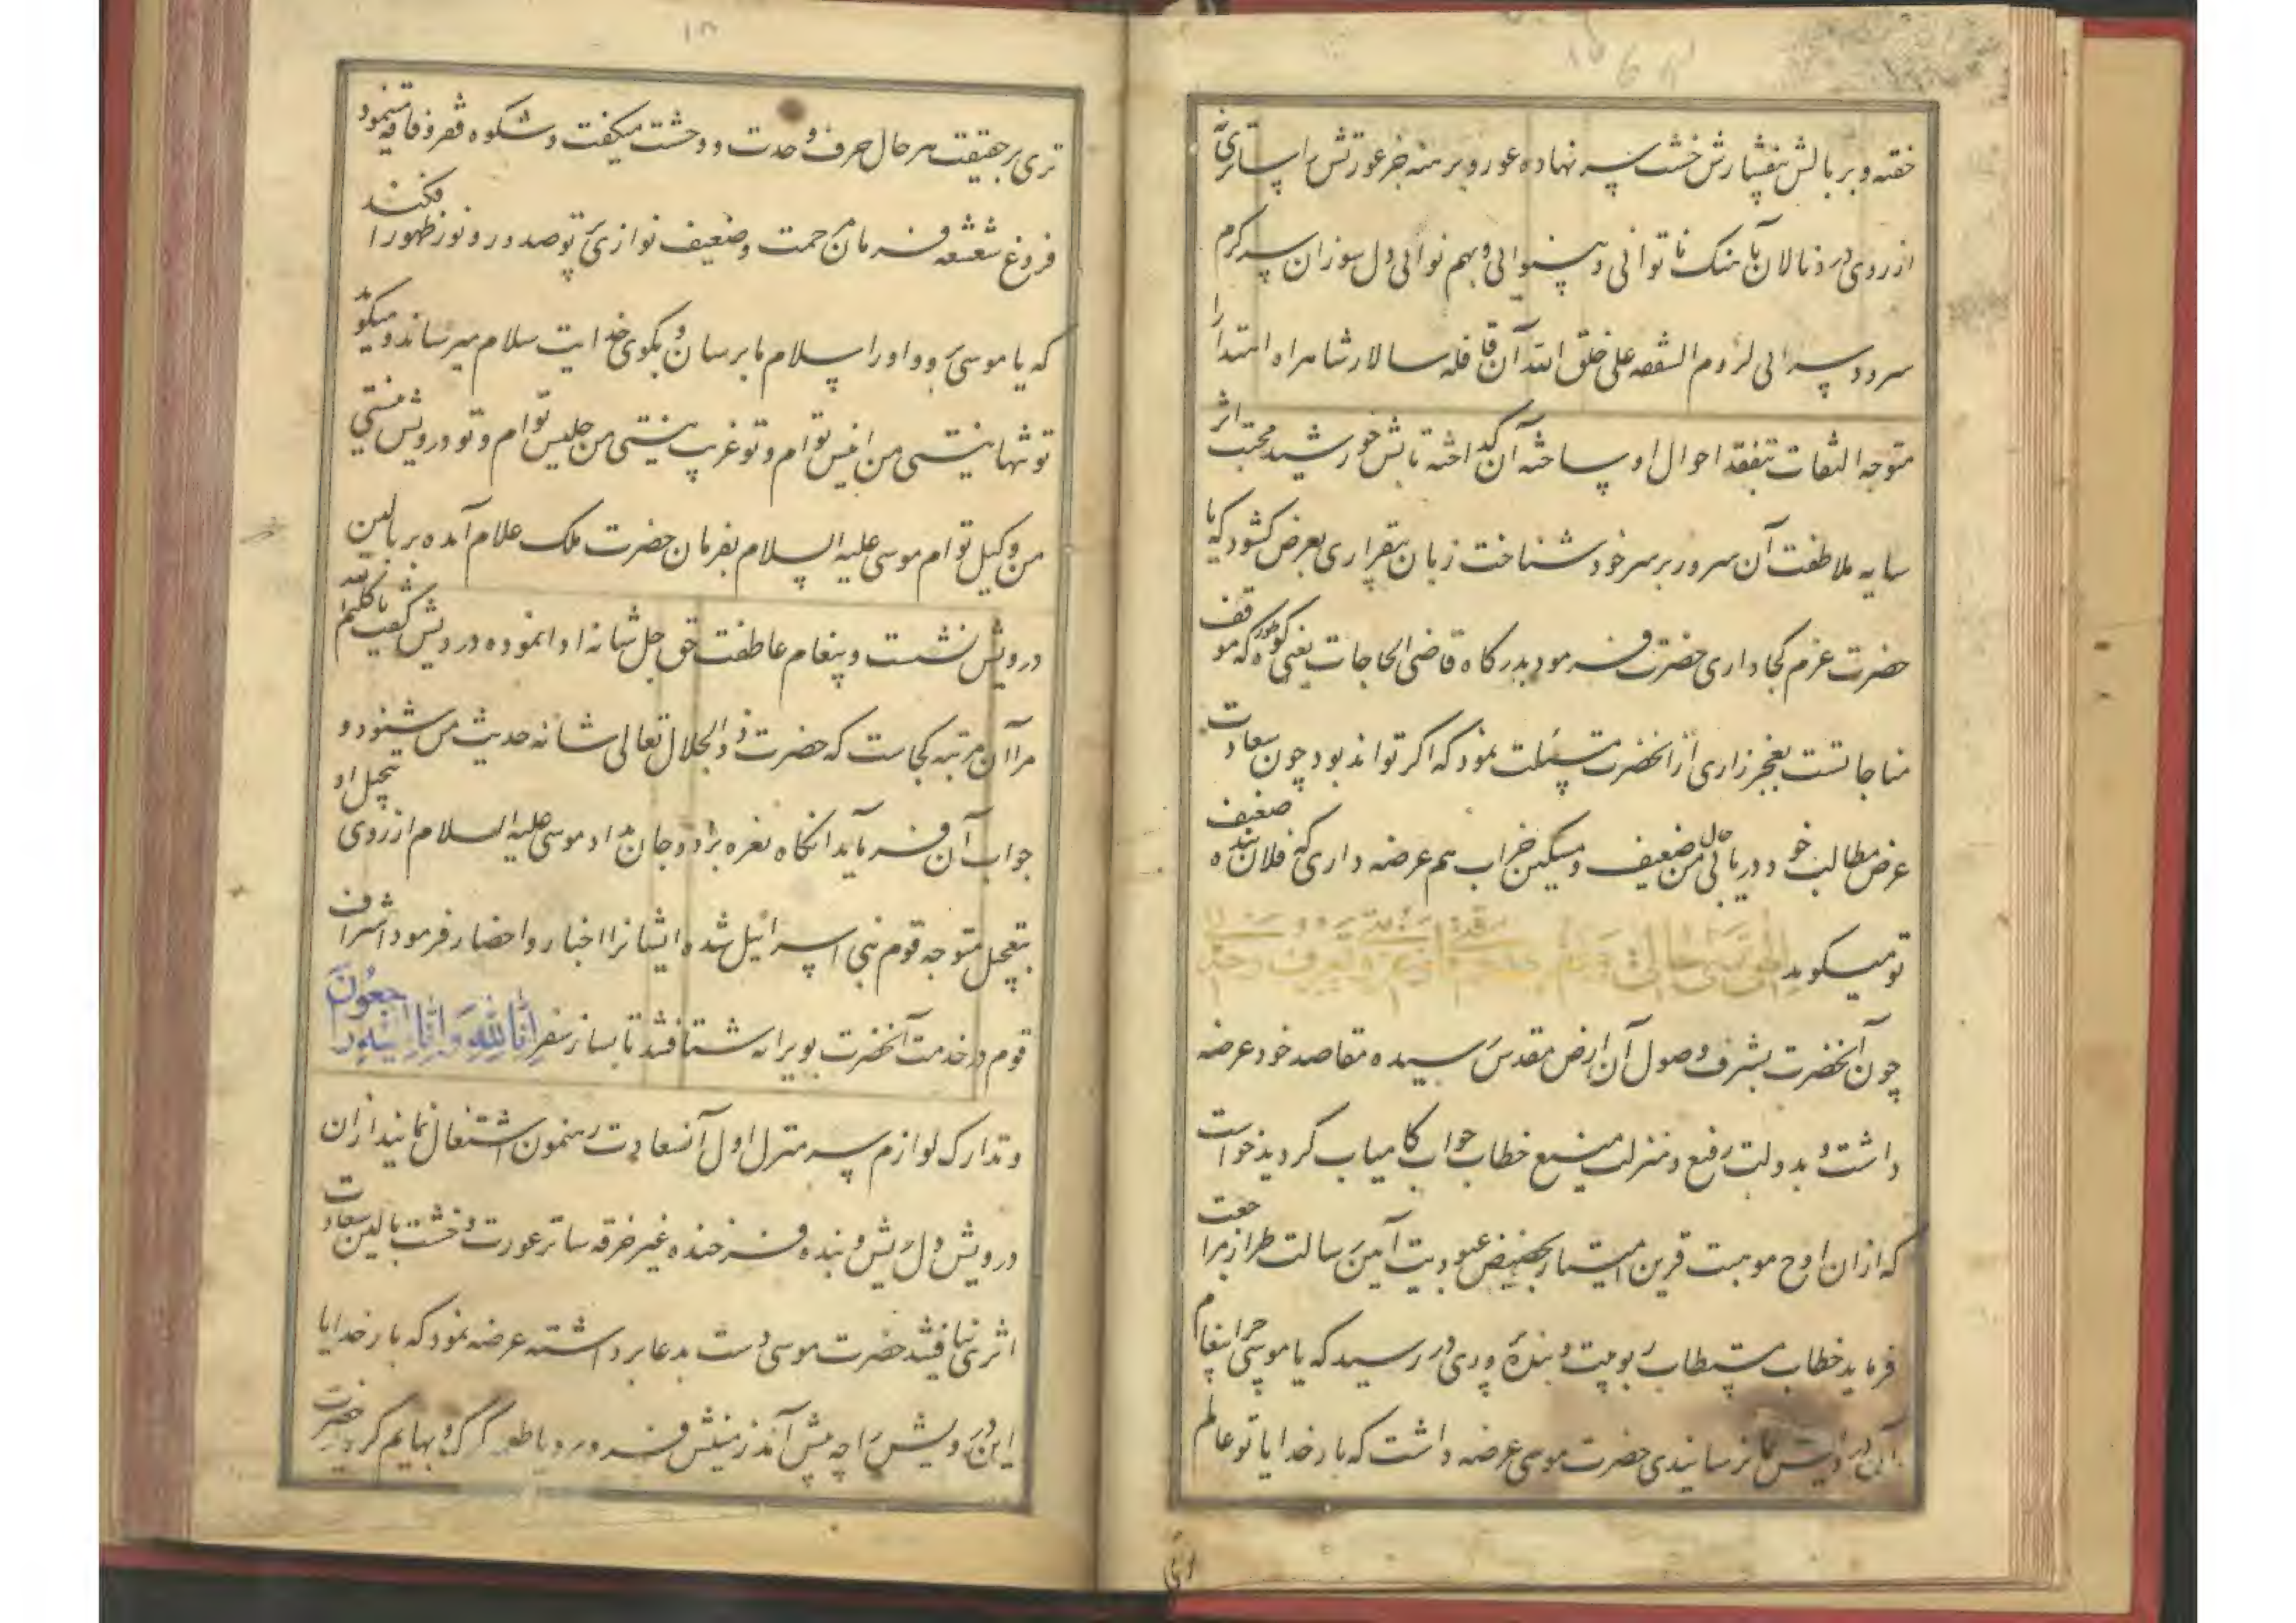 خفته و بر بالش خشت سر نهاده عور و برهنه جز عورتش را ساتری نه
از روی درد نالان بآهنک ناتوانی و بینوائی و بهم نوائی دل سوزان سر کرم
سرود سرائی لزوم الشفقه علی خلق الله آن قافله سالار شاهراه اهتدا را
متوجه التفات بتفقد احوال او ساخته آن کداخته تابش خورشید محبت اثر
سایه ملاطفت آن سرور بر سر خود شناخت زبان بیقراری بعرض کشود که یا
حضرت عزم کجا داری حضرت فرمود بدرکاه قاضی الحاجات یعنی کوه طور که موقف
مناجاتست بعجز زاری از آنحضرت مسئلت نمود که اکر تواند بود چون سعادت
عرض مطالب خود دریابی حال من ضعیف و مسکین خراب هم عرضه داری که فلان بنده ضعیف
تو میکوید الهی
چون آنحضرت بشرف وصول آن ارض مقدس رسیده مقاصد خود عرضه
داشت و بدولت رفیع و منزلت منیع خطاب جواب کامیاب کردید خواست
که از ان اوج موهبت قرین امتیاز بحضیض عبودیت آیین رسالت طراز مراجعت
فرماید خطاب مستطاب ربوبیت و بنده پروری در رسید که یا موسی چرا پیغام
آن درویش بما نرسانیدی حضرت موسی عرضه داشت که بار خدایا تو عالم
تری بر حقیقت هر حال حرف وحدت و وحشت میکفت و شکوه فقر و فاقه مینمود
فروغ شعشعه فرمان رحمت و ضعیف نوازی پرتو صدور و نور ظهور افکند
که یا موسی برو و او را سلام ما برسان و بکوی خدایت سلام میرساند و میکوید
تو تنها نیستی من انیس توام و تو غریب نیستی من جلیس توام و تو درویش نیستی
من وکیل توام موسی علیه السلام بفرمان حضرت ملک علام آمده بر بالین
درویش نشست و پیغام عاطفت حق جل شانه ادا نموده درویش کفت یا کلیم الله
مرا آن مرتبه کجاست که حضرت ذوالجلال تعالی شانه حدیث من شنود و
جواب آن فرماید انکاه نعره بزد و جان بداد موسی علیه السلام از روی تعجیل او
بتعجیل متوجه قوم بنی اسرائیل شده ایشانرا اخبار و احضار فرمود اشراف
قوم در خدمت آنحضرت بویرانه شتافتند تا بساز سفر انا لله و انا الیه راجعون
و تدارک لوازم سر منزل اول آنسعادت رهنمون اشتغال نمایند از ان
درویش دل ریش و بنده فرخنده غیر خرقه ساتر عورت و خشت بالین سعادت
اثری نیافتند حضرت موسی دست بدعا برداشته عرضه نمود که بار خدایا
این درویش را چه پیش آمد زمینش فرو برد یا طعمه کرک و بهایم کردید حضرت